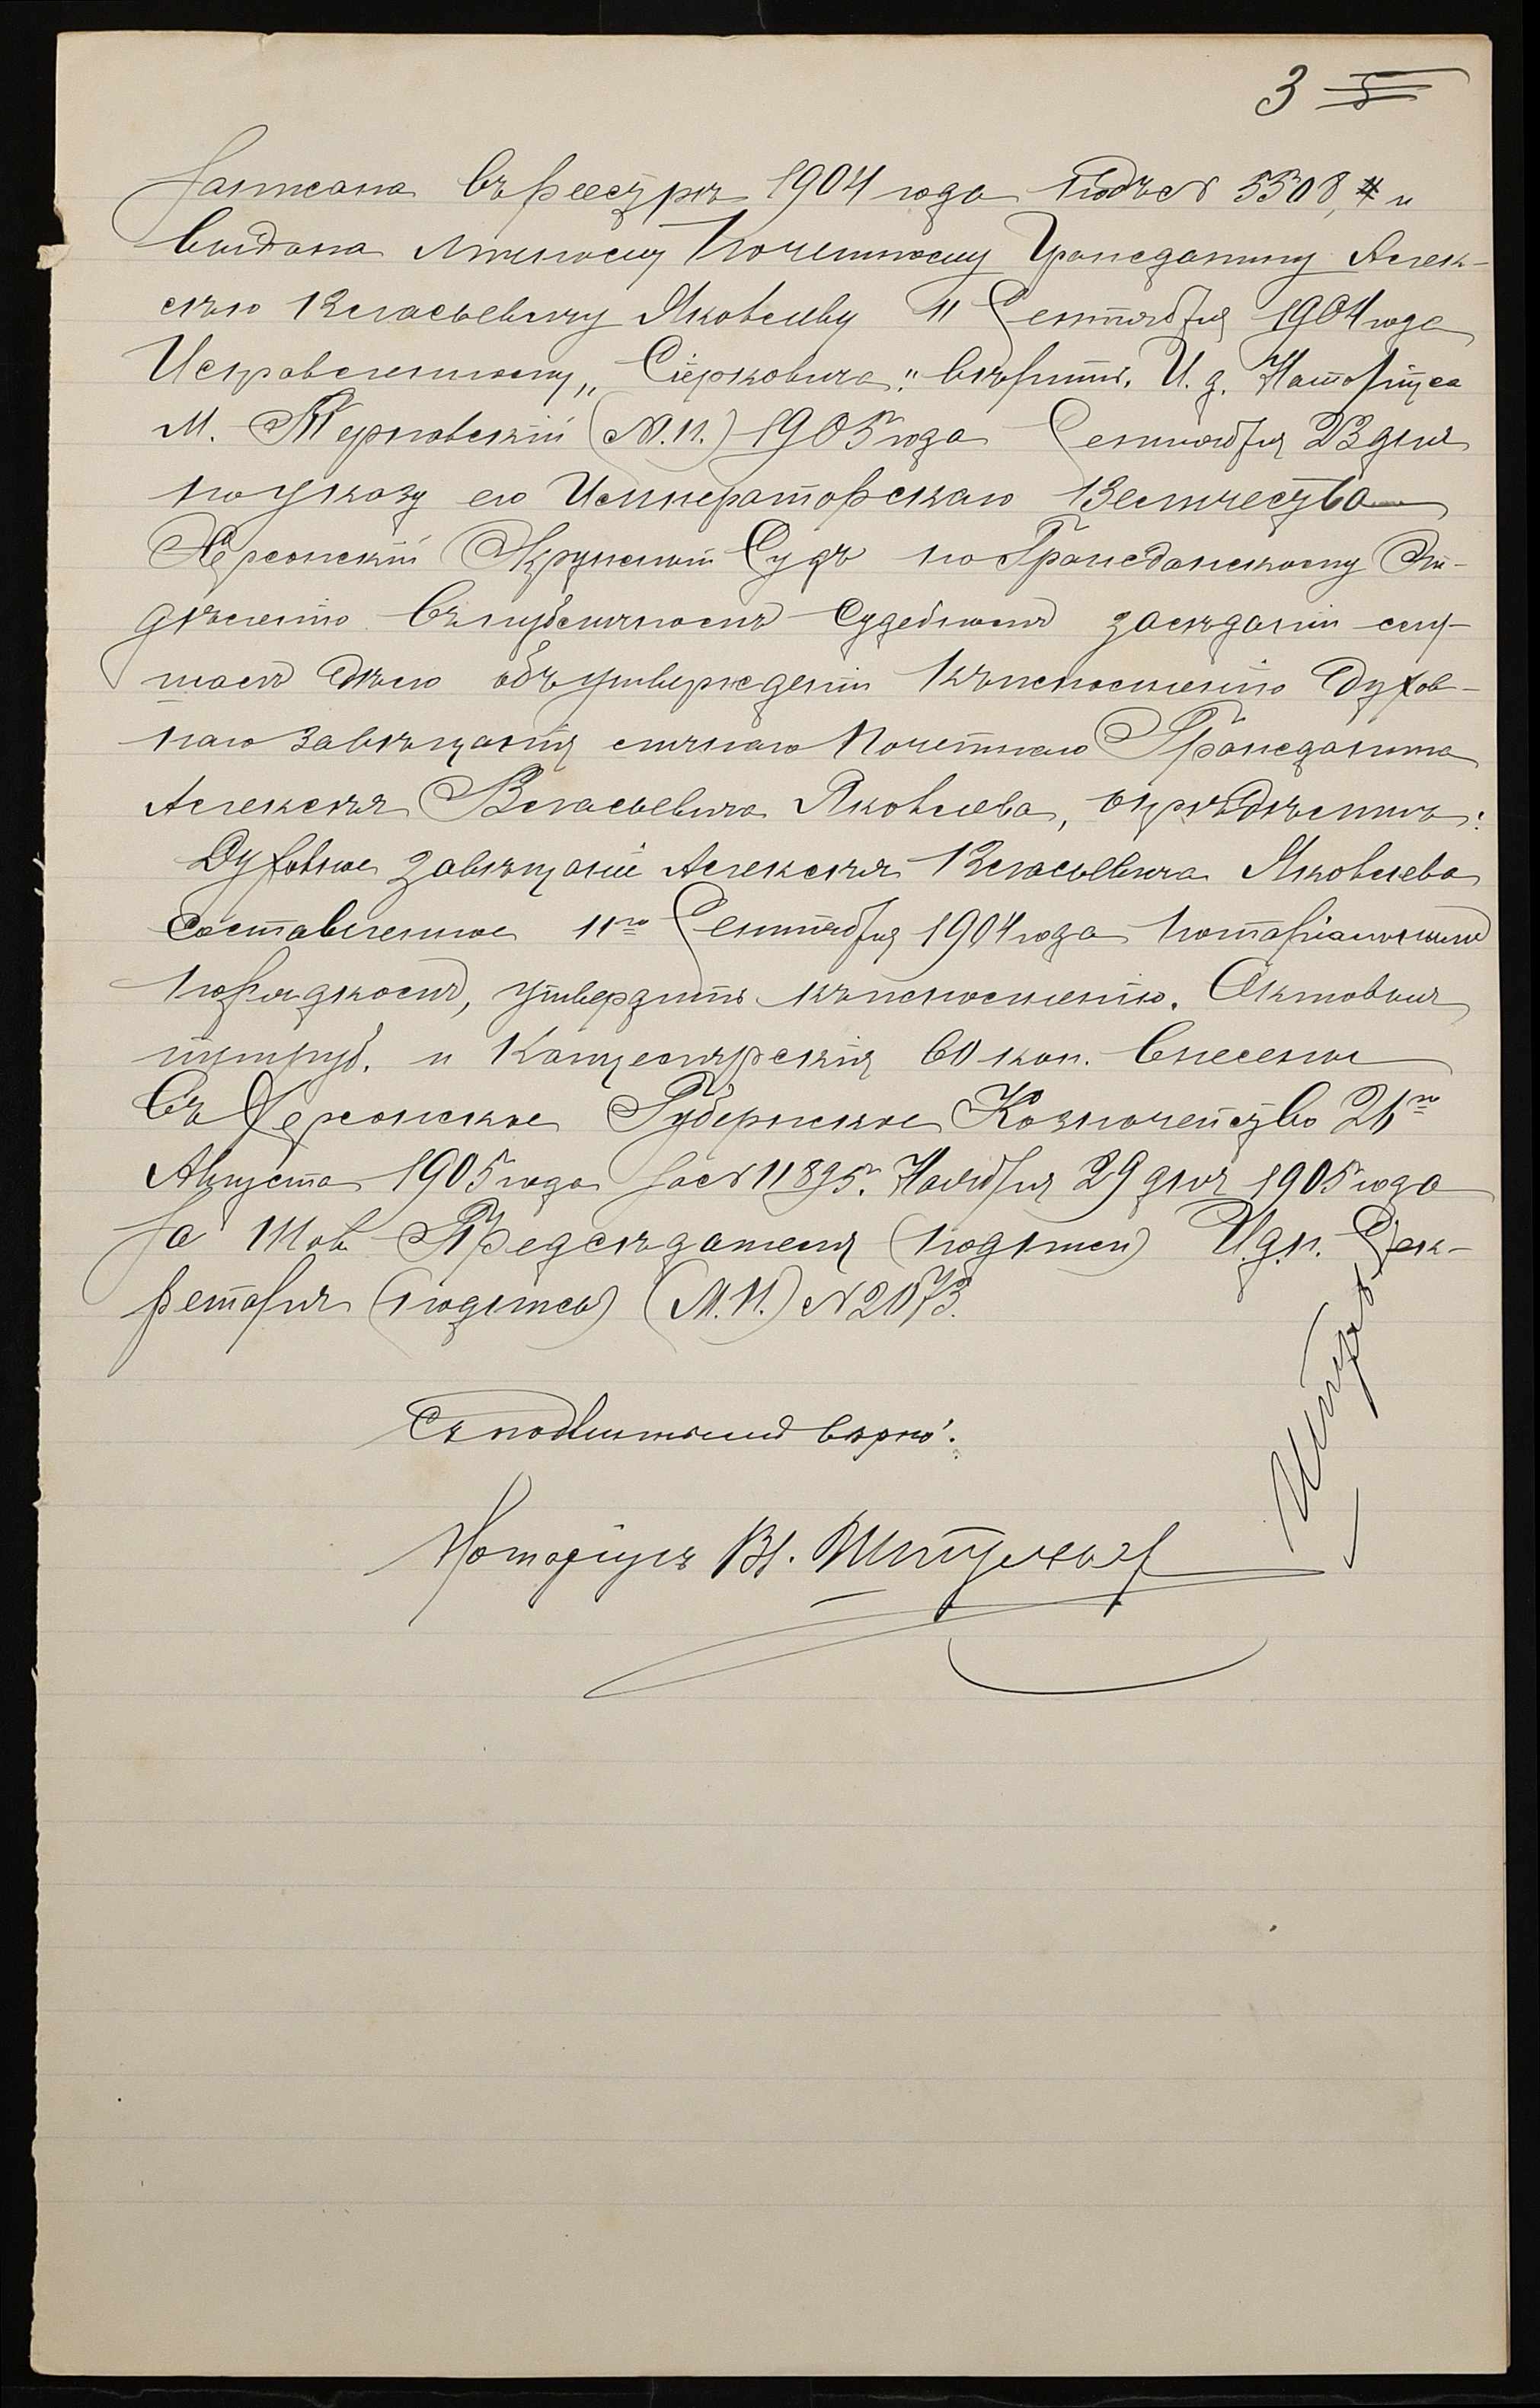 3 5
Записана въ реестръ 1904 года подъ № 5508, и
выдана личному Почетному Гражданину Алек-
сѣю Власьевичу Яковлеву 11 Сентября 1904 года
Исправленному „Стерковича" вѣрить. И. д. Нотаріуса
М. Терновскій (М.П.) 1905 года Сентября 23 дня
по указу его Императорскаго Величества
Херсонскій Окружный Судъ по Гражданскому От-
дѣленію въ публичномъ судебномъ засѣданіи слу-
шалъ дѣло объ утвержденіи къ исполненію духов-
наго завѣщанія личнаго Почетнаго Гражданина
Алексѣя Власьевича Яковлева, опредѣлилъ:
Духовное завѣщаніе Алексѣя Власьевича Яковлева
составленное 11го Сентября 1904 года нотаріальнымъ
порядкомъ, утвердить къ исполненію. Актовыя
три руб. и Канцелярскія 60 коп. внесены
въ Херсонское Губернское Казначейство 26го
Августа 1905 года за № 11895. Ноября 29 дня 1905 года
За Тов. Предсѣдателя (подпись) И.д.п. Сек-
ретаря (подпись) (М.П.) № 2073.
Съ подлиннымъ вѣрно:
Нотаріусъ Вл.